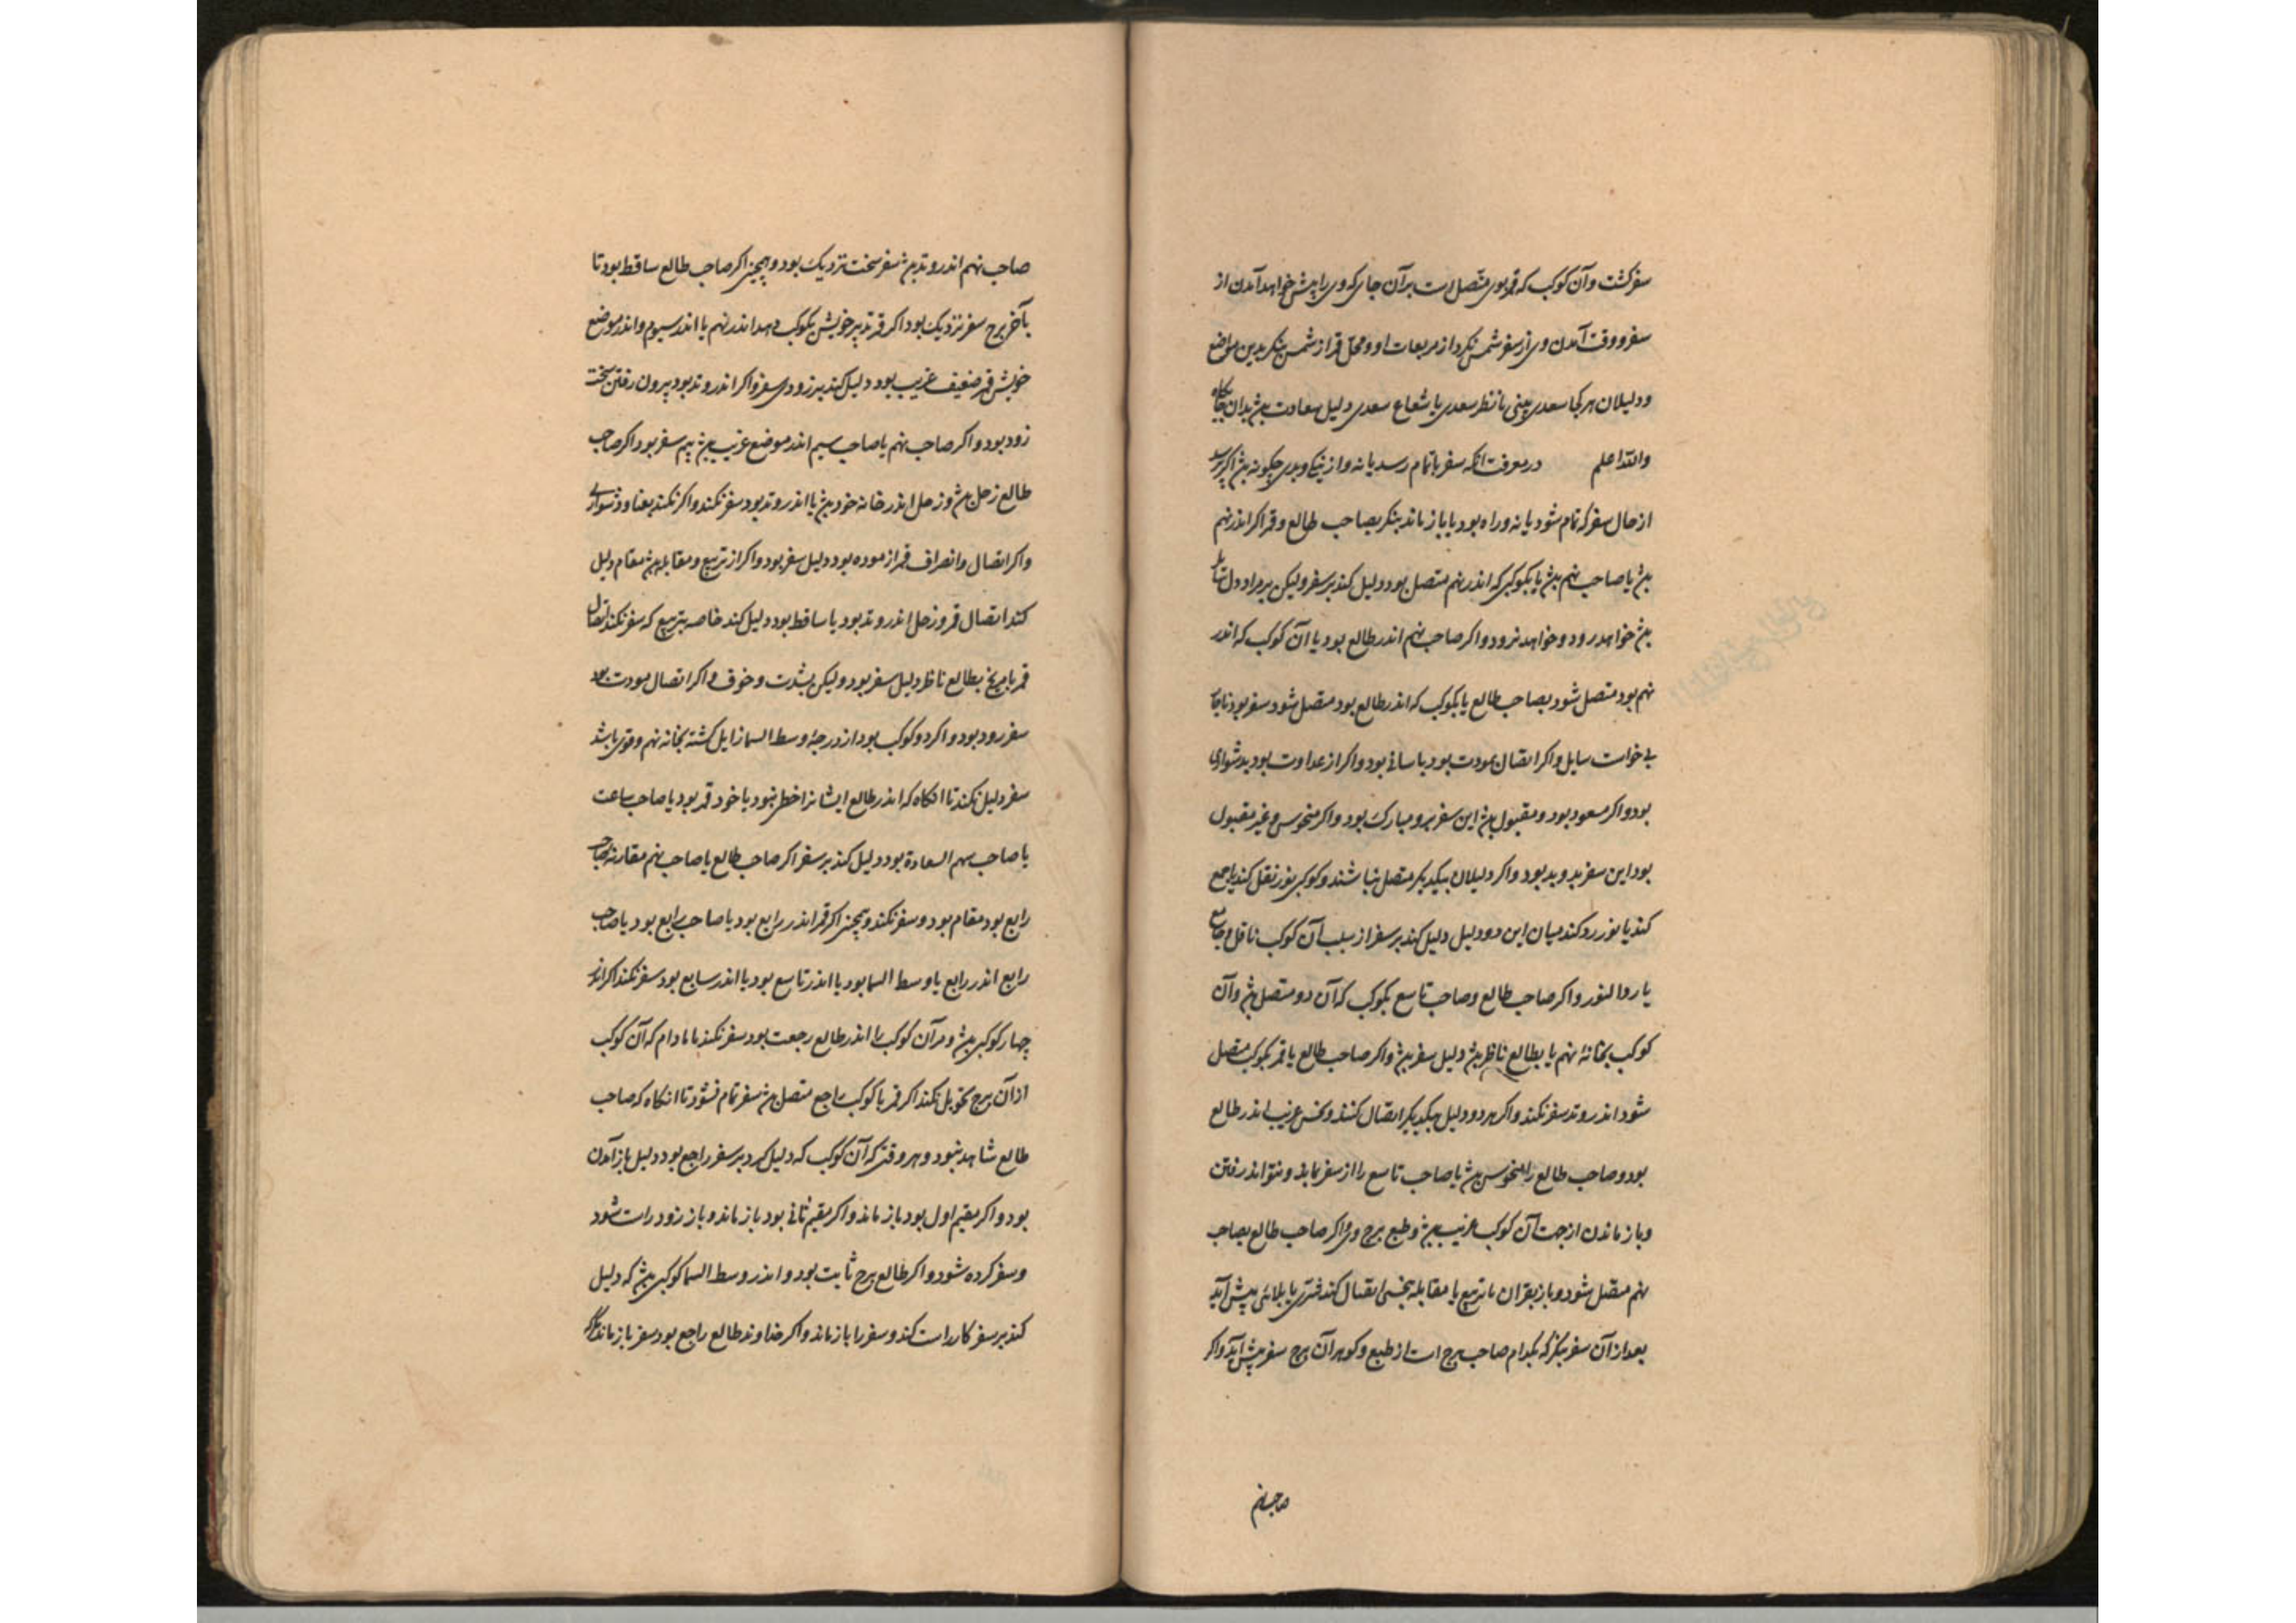 سفر کشت و آن کوکب که قمر بوی متصل است بر آن جای که وی را پیش خواهد آمدن از
سفر و وقت آمدن وی از سفر شمس نکرد از مربعات او و محل قمر از شمس بنکر بدین مواضع
و دلیلان هر کجا سعدی بینی یا نظر سعدی یا شعاع سعدی دلیل سعادت باشد بدان جایگاه
والله اعلم در معرفت انکه سفر باتمام رسد یا نه و از نیکی و بدی چکونه باشد اکر پرسد
از حال سفر که تمام شود یا نه و راه بود یا باز ماند بنکر بصاحب طالع و قمر اکر اندر نهم
باشد یا صاحب نهم باشد یا بکوکبی که اندر نهم متصل بود دلیل کند بر سفر ولیکن بر مراد دل
باشد خواهد رود و خواهد نرود و اکر صاحب نهم اندر طالع بود یا آن کوکب که اندر
نهم بود متصل شود بصاحب طالع یا بکوکب که اندر طالع بود متصل شود سفر بود
بی خواست سایل و اکر اتصال بمودت بود باسانی بود و اکر از عداوت بود بدشواری
بود و اکر مسعود بود و مقبول باشد این سفر بر و مبارک بود و اکر منحوس و غیر مقبول
بود این سفر بد و بد بود و اکر دلیلان بیکدیکر متصل نباشند و کوکبی نور نقل کند یا جمع
کند یا نور رد کند میان این دو دلیل دلیل کند بر سفر از سبب آن کوکب ناقل و جامع
یا رد النور و اکر صاحب طالع و صاحب تاسع بکوکب که آن دو متصل باشد و آن
کوکب بخانهٔ نهم یا بطالع ناظر باشد دلیل سفر باشد و اکر صاحب طالع یا قمر بکوکب متصل
شود اندر وتد سفر نکند و اکر هر دو دلیل بیکدیکر اتصال کنند و نحس غریب اندر طالع
بود و صاحب طالع را منحوس باشد یا صاحب تاسع را از سفر بماند و نتواند رفتن
و باز ماندن از جهت آن کوکب غریب باشد و طبع برج وی و اکر صاحب طالع بصاحب
نهم متصل شود و باز بقران یا تربیع یا مقابله بنحسی اتصال کند یا بلائی پیش آید
بعد از آن سفر بنکر که بکدام صاحب برج است از طبع و کوهر آن برج سفر پیش آید و اکر
صاحب نهم
صاحب نهم اندر وتد باشد سفر سخت نزدیک بود و همچنین اکر صاحب طالع ساقط بود تا
بآخر برج سفر نزدیک بود اکر قمر تدبیر خویش بکوکب دهد اندر نهم یا اندر سیوم و اندر موضع
خویش قمر ضعیف غریب بود دلیل کند بر زودی سفر و اکر اندر وتد بود بیرون رفتن سخت
زود بود و اکر صاحب نهم یا صاحب سیم اندر موضع غریب باشد بیم سفر بود اکر صاحب
طالع زحل باشد و زحل اندر خانه خود باشد یا اندر وتد بود سفر نکند و اکر نکند بعنا و دشواری
و اکر اتصال و انصراف قمر از موده بود دلیل سفر بود و اکر از تربیع و مقابله باشد مقام دلیل
کند اتصال قمر و زحل اندر وتد بود یا ساقط بود دلیل کند خاصه بتربیع که سفر نکند اتصال
قمر با مریخ بطالع ناظر دلیل سفر بود ولیکن بشدت و خوف و اکر اتصال مودت بود
سفر زود بود و اکر دو کوکب بود از درجهٔ وسط السما زایل کشته بخانه نهم و قوی باشد
سفر دلیل نکند تا انکاه که اندر طالع ایشانرا خطی نبود یا خود قمر بود یا صاحب ساعت
یا صاحب سهم السعادة بود دلیل کند بر سفر اکر صاحب طالع یا صاحب نهم مقارنه صاحب
رابع بود مقام بود و سفر نکند و همچنین اکر قمر اندر رابع بود یا صاحب رابع بود یا صاحب
رابع اندر رابع یا وسط السما بود یا اندر تاسع بود یا اندر سابع بود سفر نکند اکر اندر
چهار کوکبی باشد و مر آن کوکب را اندر طالع رجعت بود سفر نکند تا مادام که آن کوکب
از آن برج تحویل نکند اکر قمر با کوکب راجع متصل باشد سفر تمام نشود تا انکاه که صاحب
طالع شاهد نبود و هر وقتی که آن کوکب که دلیل کرد بر سفر راجع بود دلیل باز آمدن
بود و اکر مقیم اول بود باز ماند و اکر مقیم ثانی بود باز ماند و باز زود راست شود
و سفر کرده شود و اکر طالع برج ثابت بود و اندر وسط السما کوکبی باشد که دلیل
کند بر سفر کار راست کند و سفر را باز ماند و اکر خداوند طالع راجع بود سفر باز ماند